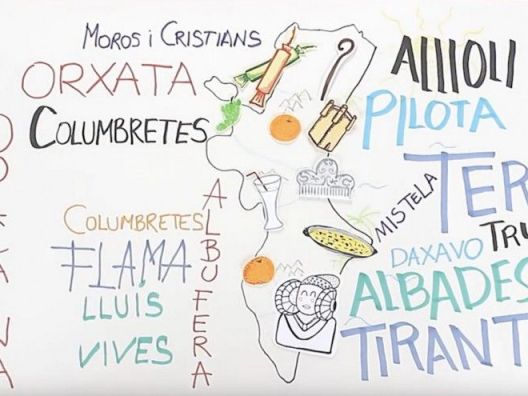 MOROS i CRISTIANS
ORXATA
COLUMBRETES
COLUMBRETES
FLAMA
LLUIS
VIVES
ALBUFERA
ALLIOLI
PILOTA
TER
MISTELA
TRU
DAXAVO
ALBADES
TIRANT